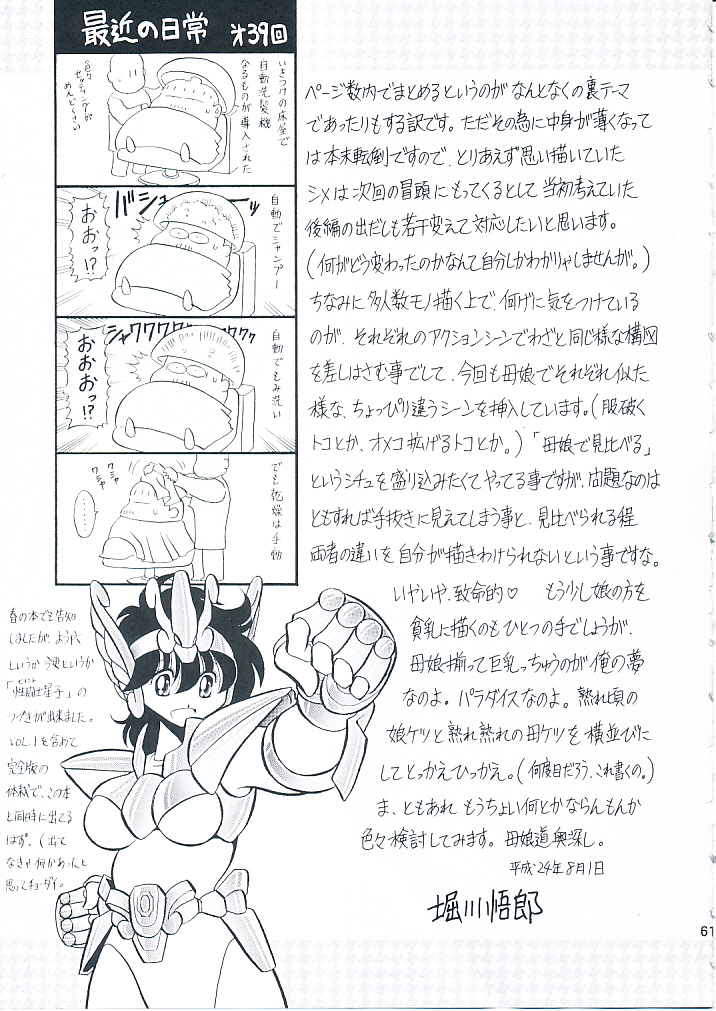 最近の日常 オ39回
いきつけの床屋で
自動洗髪機
なるものが導入された
色々
セッティングが
めんどくさい
自動でシャンプー
バシューーッ
おおっ!?
自動でもみ洗い
シャワワワワワワワ
おおおっ!?
でも乾燥は手動
ワシャ
ワシャ
……
ページ数内でまとめるというのが なんとなくの裏テーマ
であったりもする訳です。ただその為に中身が薄くなって
は本末転倒ですので、とりあえず思い描いていた
シメは次回の冒頭にもってくるとして 当初考えていた
後編の出だしも若干変えて対応したいと思います。
(何がどう変わったのかなんて自分しかわかりゃしませんが。)
ちなみに多人数モノ描く上で、何げに気をつけている
のが、それぞれのアクションシーンでわざと同じ様な構図
を差しはさむ事でして、今回も母娘でそれぞれ似た
様な、ちょっぴり違うシーンを挿入しています。(服破く
トコとか、オメコ拡げるトコとか。)「母娘で見比べる」
というシチュを盛り込みたくてやってる事ですが、問題なのは
ともすれば手抜きに見えてしまう事と、見比べられる程
両者の違いを自分が描きわけられないという事ですな。
いやいや、致命的♡ もう少し娘の方を
貧乳に描くのもひとつの手でしょうが、
母娘揃って巨乳っちゅうのが俺の夢
なのよ。パラダイスなのよ。熟れ頃の
娘ケツと熟れ熟れの母ケツを横並びに
してとっかえひっかえ。(何度目だろう、これ書くの。)
ま、ともあれ もうちょい何とかならんもんか
色々検討してみます。母娘道奥深し。
平成24年8月1日
堀川悟郎
春の本でも告知
しましたが、ようやく
というか今更というか
「性闘士星子」の
つづきが出来ました。
VOL.1を含めて
完全版の
体裁で、この本
と同時に出てる
はず。(出て
なきゃ何かあったと
思ってチョーダイ。
61